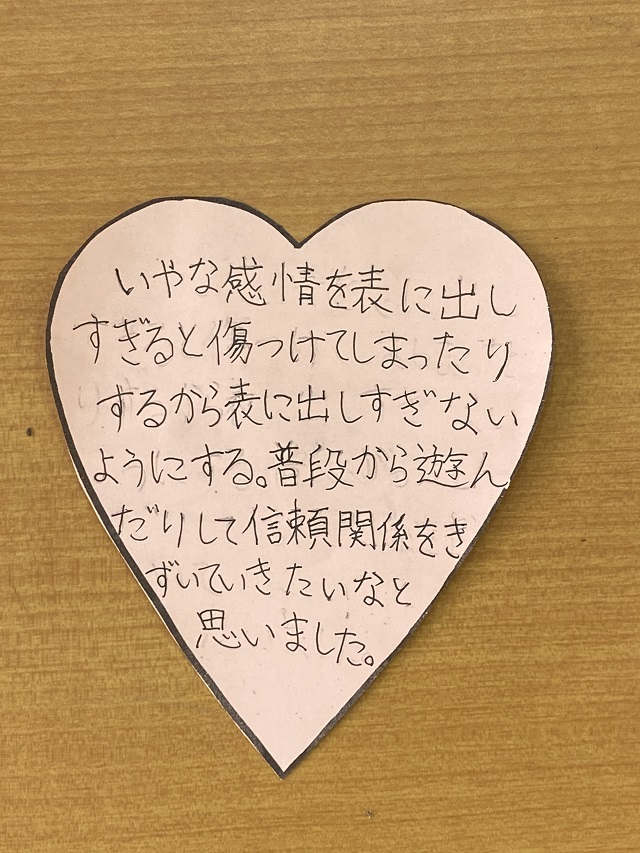 いやな感情を表に出し
すぎると傷つけてしまったり
するから表に出しすぎない
ようにする。普段から遊ん
だりして信頼関係をき
ずいていきたいなと
思いました。